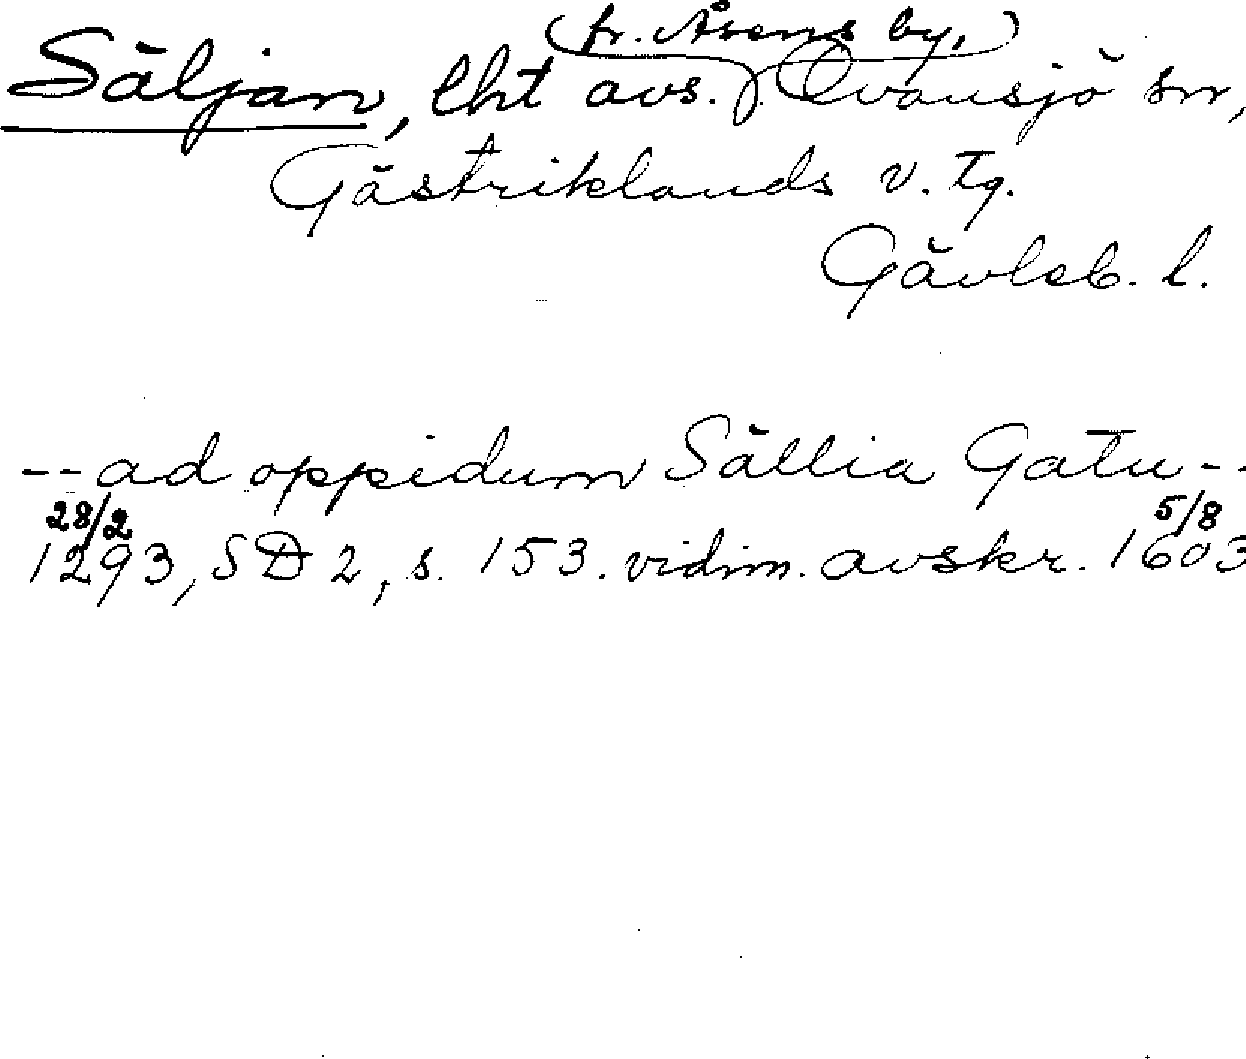 (fr. Åsens by,)
Säljan, lht avs. Ovansjö sn,
Gästriklands v. tg.
Gävleb. l.
-- ad oppidum Sällia Gatu --
28/2 5/8
1293, SD 2, s. 153. vidim. avskr. 1603